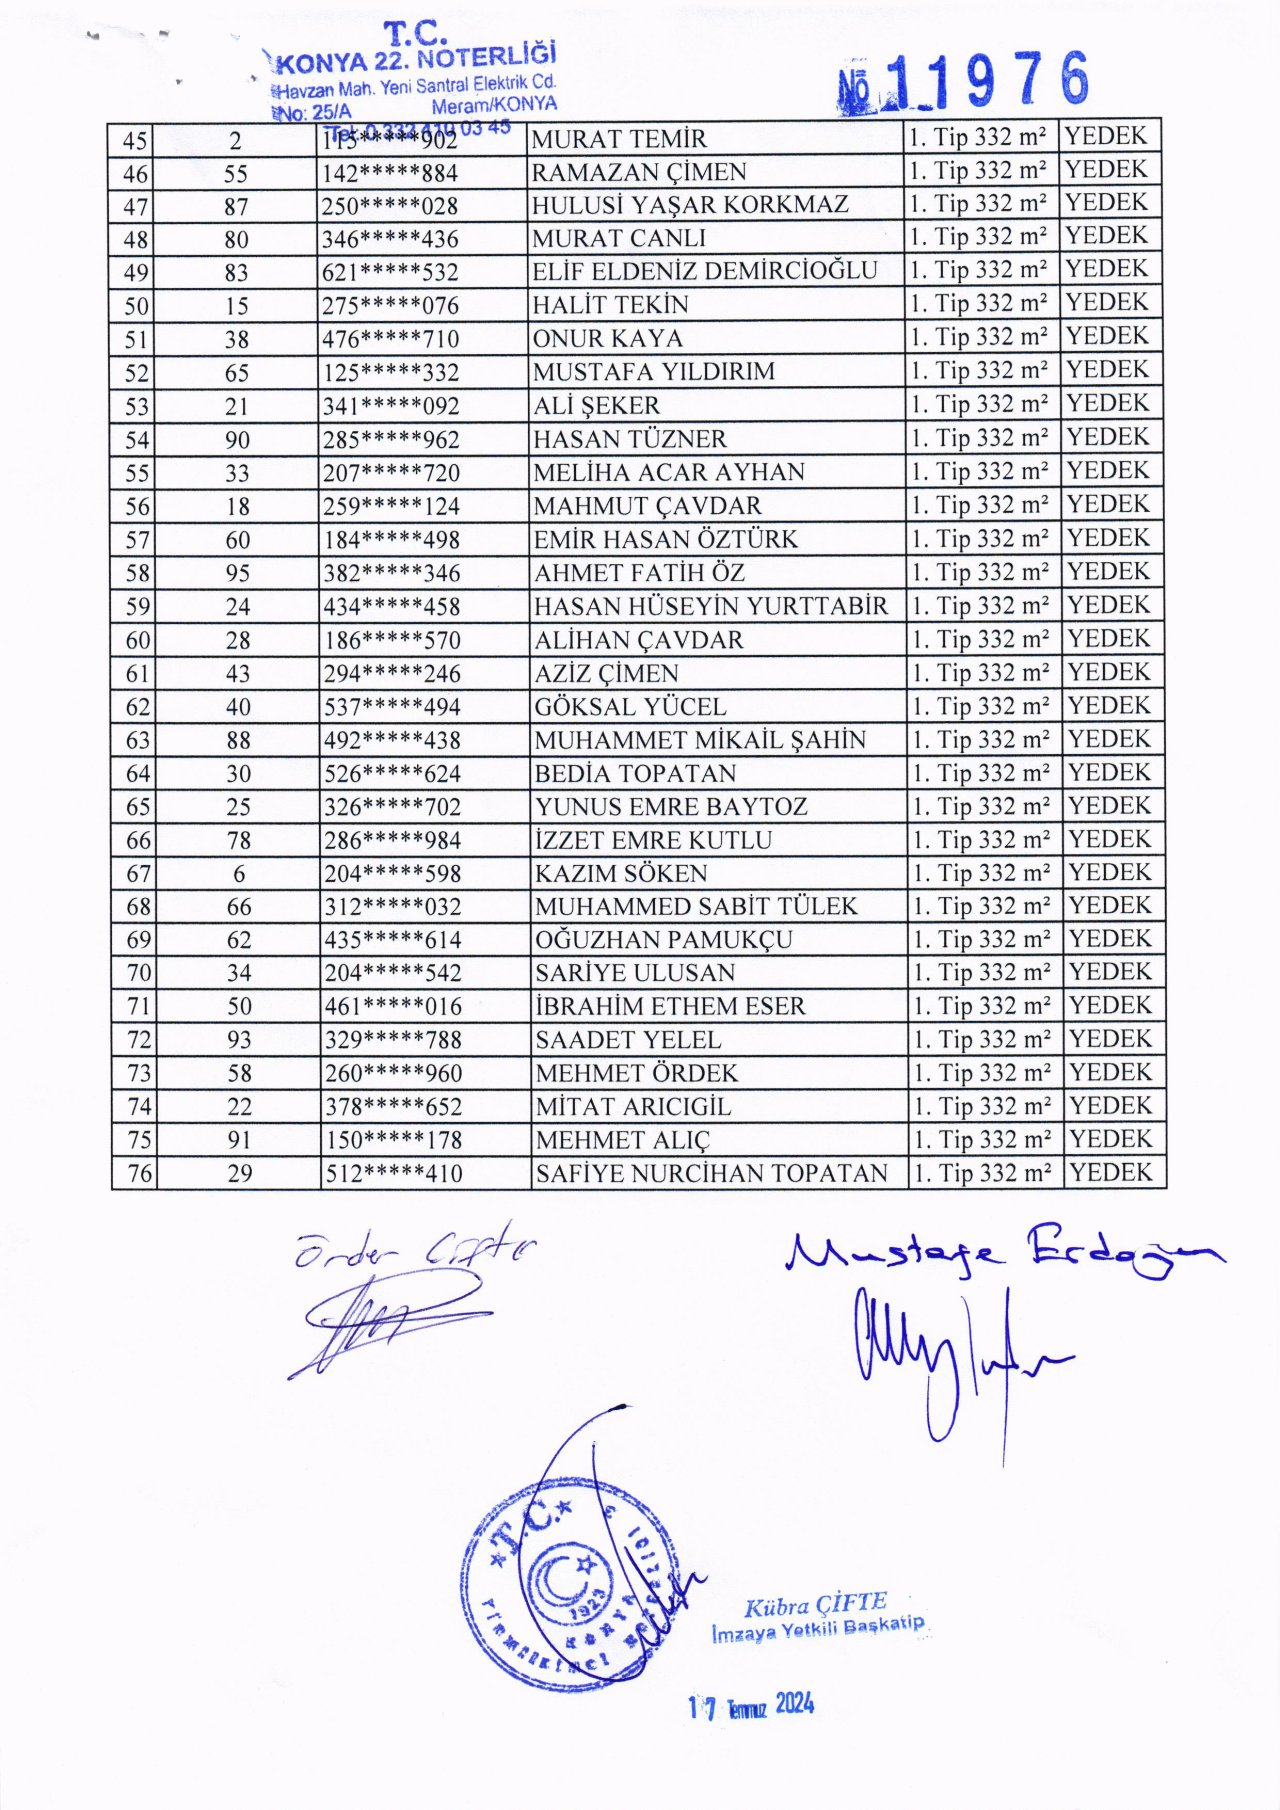 T.C.
KONYA 22. NOTERLİĞİ
Havzan Mah. Yeni Santral Elektrik Cd.
No: 25/A Meram/KONYA
Tel: 0 332 410 03 45
№ 11976
45 2 115*****902 MURAT TEMİR 1. Tip 332 m² YEDEK
46 55 142*****884 RAMAZAN ÇİMEN 1. Tip 332 m² YEDEK
47 87 250*****028 HULUSİ YAŞAR KORKMAZ 1. Tip 332 m² YEDEK
48 80 346*****436 MURAT CANLI 1. Tip 332 m² YEDEK
49 83 621*****532 ELİF ELDENİZ DEMİRCİOĞLU 1. Tip 332 m² YEDEK
50 15 275*****076 HALİT TEKİN 1. Tip 332 m² YEDEK
51 38 476*****710 ONUR KAYA 1. Tip 332 m² YEDEK
52 65 125*****332 MUSTAFA YILDIRIM 1. Tip 332 m² YEDEK
53 21 341*****092 ALİ ŞEKER 1. Tip 332 m² YEDEK
54 90 285*****962 HASAN TÜZNER 1. Tip 332 m² YEDEK
55 33 207*****720 MELİHA ACAR AYHAN 1. Tip 332 m² YEDEK
56 18 259*****124 MAHMUT ÇAVDAR 1. Tip 332 m² YEDEK
57 60 184*****498 EMİR HASAN ÖZTÜRK 1. Tip 332 m² YEDEK
58 95 382*****346 AHMET FATİH ÖZ 1. Tip 332 m² YEDEK
59 24 434*****458 HASAN HÜSEYİN YURTTABİR 1. Tip 332 m² YEDEK
60 28 186*****570 ALİHAN ÇAVDAR 1. Tip 332 m² YEDEK
61 43 294*****246 AZİZ ÇİMEN 1. Tip 332 m² YEDEK
62 40 537*****494 GÖKSAL YÜCEL 1. Tip 332 m² YEDEK
63 88 492*****438 MUHAMMET MİKAİL ŞAHİN 1. Tip 332 m² YEDEK
64 30 526*****624 BEDİA TOPATAN 1. Tip 332 m² YEDEK
65 25 326*****702 YUNUS EMRE BAYTOZ 1. Tip 332 m² YEDEK
66 78 286*****984 İZZET EMRE KUTLU 1. Tip 332 m² YEDEK
67 6 204*****598 KAZIM SÖKEN 1. Tip 332 m² YEDEK
68 66 312*****032 MUHAMMED SABİT TÜLEK 1. Tip 332 m² YEDEK
69 62 435*****614 OĞUZHAN PAMUKÇU 1. Tip 332 m² YEDEK
70 34 204*****542 SARİYE ULUSAN 1. Tip 332 m² YEDEK
71 50 461*****016 İBRAHİM ETHEM ESER 1. Tip 332 m² YEDEK
72 93 329*****788 SAADET YELEL 1. Tip 332 m² YEDEK
73 58 260*****960 MEHMET ÖRDEK 1. Tip 332 m² YEDEK
74 22 378*****652 MİTAT ARICIGİL 1. Tip 332 m² YEDEK
75 91 150*****178 MEHMET ALIÇ 1. Tip 332 m² YEDEK
76 29 512*****410 SAFİYE NURCİHAN TOPATAN 1. Tip 332 m² YEDEK
Önder Çiftci
Mustafa Erdoğan
T.C.
1923
KONYA
Kübra ÇİFTE
İmzaya Yetkili Başkatip
17 Temmuz 2024